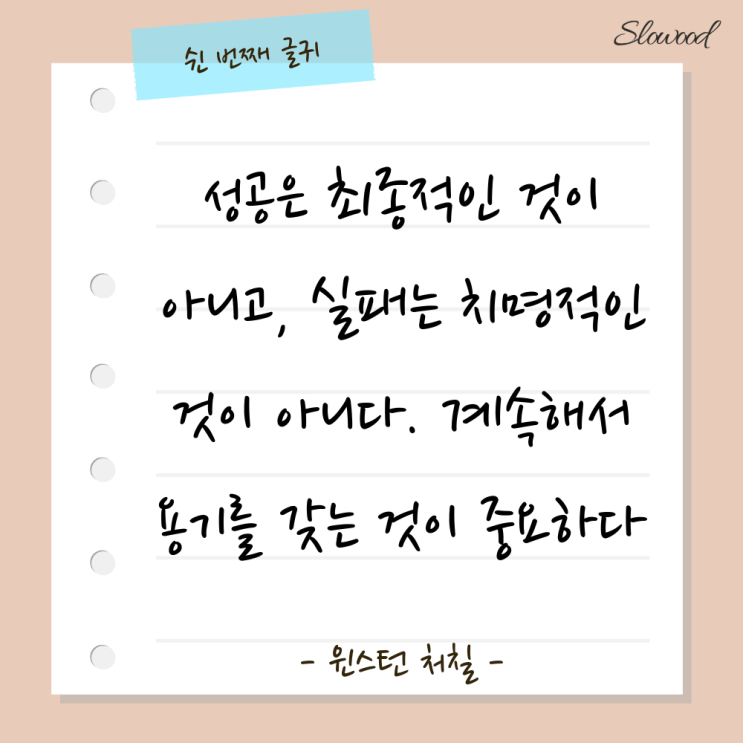 쉰 번째 글귀
Slowood
성공은 최종적인 것이
아니고, 실패는 치명적인
것이 아니다. 계속해서
용기를 갖는 것이 중요하다
- 윈스턴 처칠 -